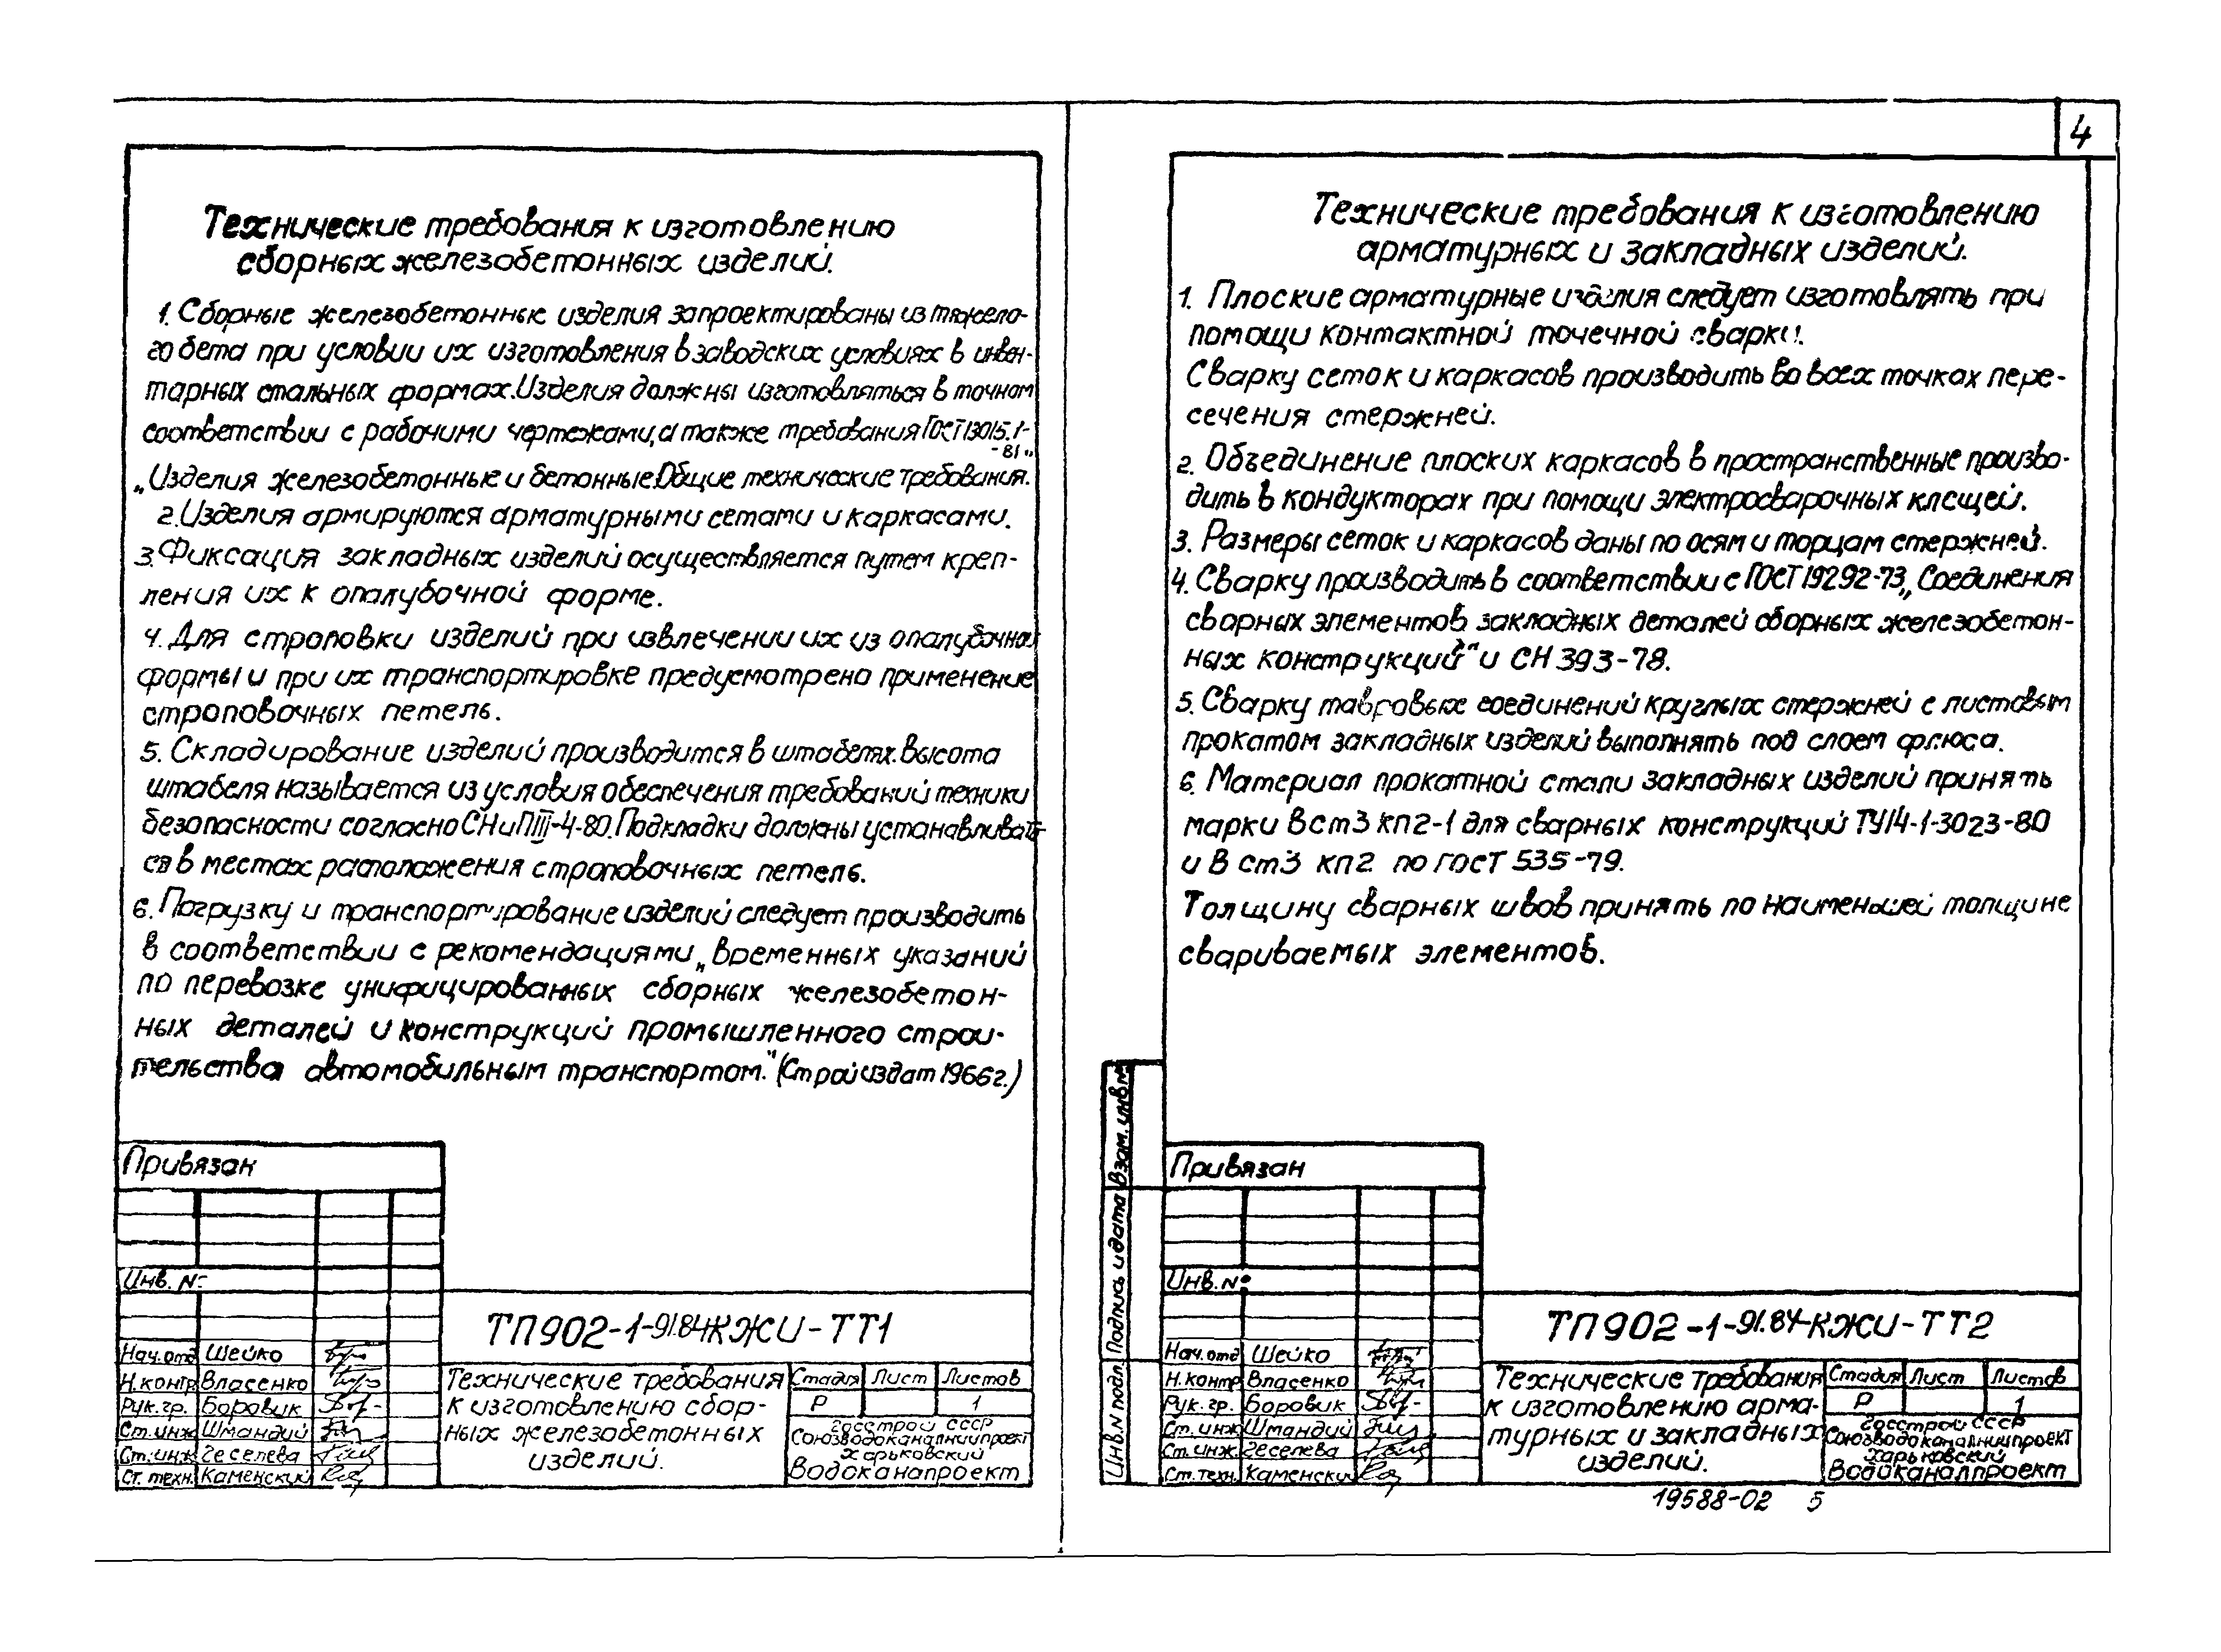 4
Технические требования к изготовлению
сборных железобетонных изделий.
1. Сборные железобетонные изделия запроектированы из тяжело-
го бета при условии их изготовления в заводских условиях в инвен-
тарных стальных формах. Изделия должны изготовляться в точном
соответствии с рабочими чертежами, а также требования ГОСТ 13015.1-
-81"
„Изделия железобетонные и бетонные. Общие технические требования.
2. Изделия армируются арматурными сетами и каркасами.
3. Фиксация закладных изделий осуществляется путем креп-
ления их к опалубочной форме.
4. Для строповки изделий при извлечении их из опалубочной
формы и при их транспортировке предусмотрено применение
строповочных петель.
5. Складирование изделий производится в штабелях. Высота
штабеля называется из условия обеспечения требований техники
безопасности согласно СНиП III-4-80. Подкладки должны устанавливать-
ся в местах расположения строповочных петель.
6. Погрузку и транспортирование изделий следует производить
в соответствии с рекомендациями „Временных указаний
по перевозке унифицированных сборных железобетон-
ных деталей и конструкций промышленного строи-
тельства автомобильным транспортом." (Стройиздат 1966г.)
Привязан
Инв. №
Нач.отд Шейко
Н.контр Власенко
Рук.гр. Боровик
Ст.инж Шмандий
Ст.инж Геселева
Ст. техн. Каменский
ТП902-1-91.84КЖИ-ТТ1
Технические требования
к изготовлению сбор-
ных железобетонных
изделий.
Стадия Лист Листов
Р 1
Госстрой СССР
Союзводоканалниипроект
Харьковский
Водоканапроект
Технические требования к изготовлению
арматурных и закладных изделий.
1. Плоские арматурные изделия следует изготовлять при
помощи контактной точечной сварки.
Сварку сеток и каркасов производить во всех точках пере-
сечения стержней.
2. Объединение плоских каркасов в пространственные произво-
дить в кондукторах при помощи электросварочных клещей.
3. Размеры сеток и каркасов даны по осям и торцам стержней.
4. Сварку производить в соответствии с ГОСТ 19292-73 „Соединения
сварных элементов закладных деталей сборных железобетон-
ных конструкций" и СН 393-78.
5. Сварку тавровых соединений круглых стержней с листовым
прокатом закладных изделий выполнять под слоем флюса.
6. Материал прокатной стали закладных изделий принять
марки Вст3 кп2-1 для сварных конструкций ТУ14-1-3023-80
и В ст3 кп2 по ГОСТ 535-79.
Толщину сварных швов принять по наименьшей толщине
свариваемых элементов.
Взам. инв №
Подпись и дата
Инв.№ подл.
Привязан
Инв.№
Нач.отд Шейко
Н.контр Власенко
Рук. гр. Боровик
Ст.инж Шмандий
Ст.инж. Геселева
Ст.техн. Каменский
ТП902-1-91.84-КЖИ-ТТ2
Технические требования
к изготовлению арма-
турных и закладных
изделий.
Стадия Лист Листов
Р 1
Госстрой СССР
Союзводоканалниипроект
Харьковский
Водоканалпроект
19588-02 5